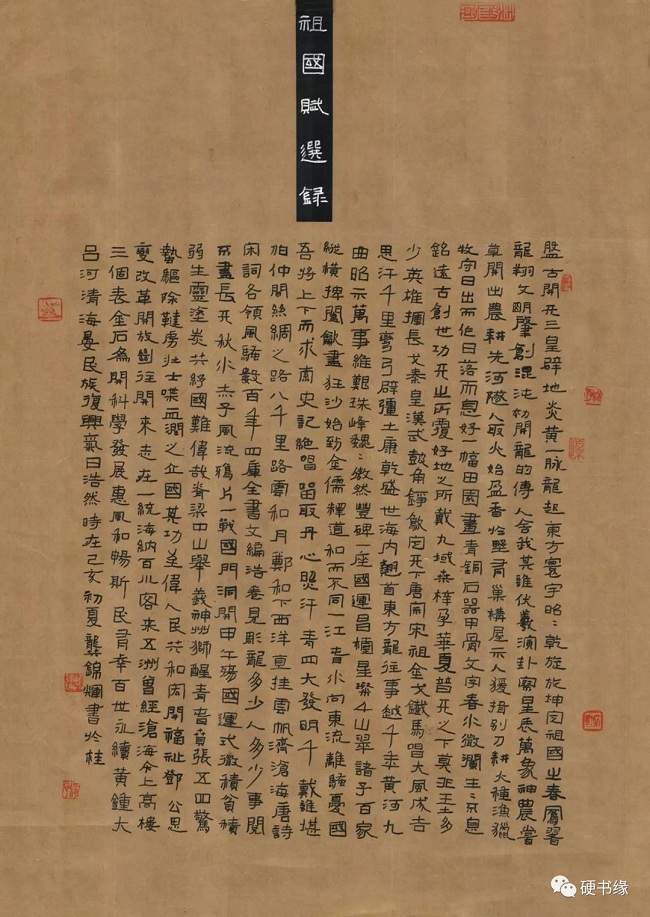 祖國賦選錄
盤古開天三皇辟地炎黃一脈龍起東方寰宇昭〻乾旋旋坤定祖國之春鳳翥
龍翔文明肇創混沌初開龍的傳人舍我其誰伏羲演卦察星悉萬象神農嘗
草開出農耕先河燧人取火始盈香有巢構屋示人猨揖别刀耕火種漁獵
牧守日出而作日落而息好一幅田園畫青銅石器甲骨文字春水微瀾生〻不息
銘遠古創世功天之所覆好地之所戴九域桑梓孕華夏普天之下莫非王土多
少英雄揮長戈秦皇漢武鼓角錚定天下唐宋祖金戈鐵馬唱大風成吉
思汗千里彎弓辟疆土康乾盛世海内翹首東方龍往事越千年黃河九
曲昭示萬事維艱珠峰巍〻巍然豐碑一座國運昌星燦山翠諸子百家
縱橫捭闔盡狂沙始到金儒釋道和而不同一江春水向東流離騷憂國
吾將上下而求索史記絕唱留取丹心照汗青四大發明千載難堪
伯仲間絲綢之路八千里路雲和月鄭和下西洋直挂雲帆濟滄海唐詩
宋詞各領風騷數百年四庫全書文編浩卷見彫龍多少人多少事閱
不盡長天秋水赤子風流鴉片一戰國門洞開甲午殤國運式微積貧積
弱生靈塗炭共紓國難偉哉脊梁中山舉義神州獅醒青春賁張五四驚
蟄驅除韃虜壯士喋血潤之立國其功至偉人民共和宏開福祉鄧公思
變改革開放繼往開來志在一統海納百川客來五洲曾經滄海今上高樓
三個表金石為開科學發展惠風和暢斯民有幸百世永續黃鍾大
呂河清海晏民族復興氣曰浩然時在己亥初夏龔錦書於桂
硬书缘